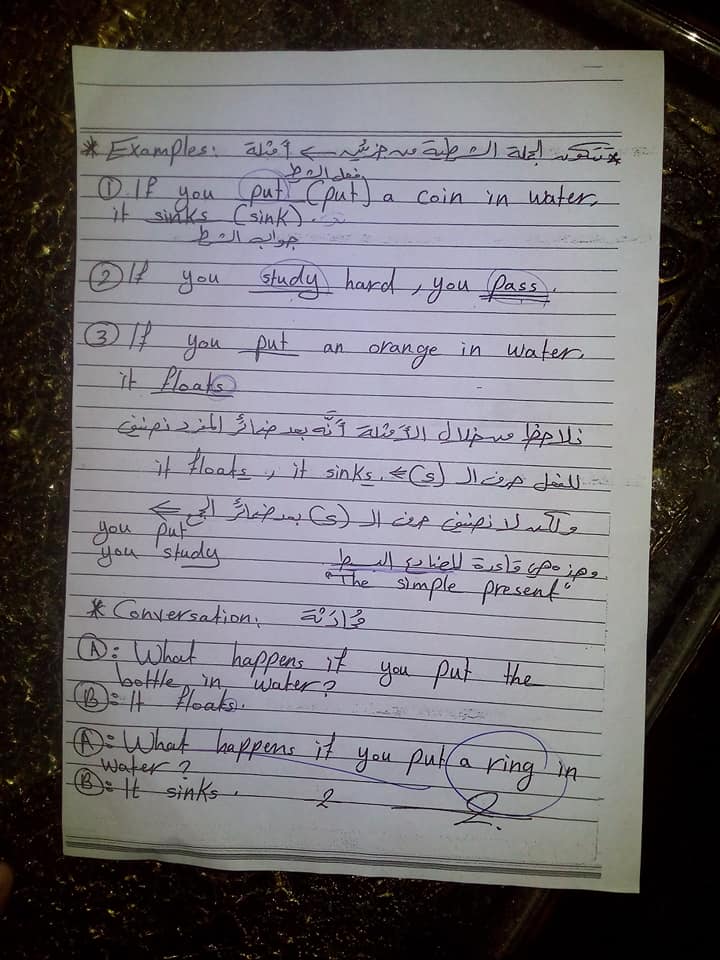 * Examples: أمثلة ← تتكون الجملة الشرطية من جزئين *
فعل الشرط
① If you put (put) a coin in water,
it sinks (sink).
جواب الشرط
② If you study hard, you pass.
③ If you put an orange in water,
it floats
نلاحظ من خلال الأمثلة أنَّه بعد ضمائر المفرد نضيف
للفعل حرف الـ (s) ← it floats, it sinks.
ولكن لا نضيف حرف الـ (s) بعد ضمائر الجمع ←
you put
you study
وهذه هي قاعدة المضارع البسيط
"The simple present"
* Conversation: محادثة
Ⓐ: What happens if you put the
bottle in water?
Ⓑ: It floats.
Ⓐ: What happens if you put a ring in
water?
Ⓑ: It sinks.
2 2.